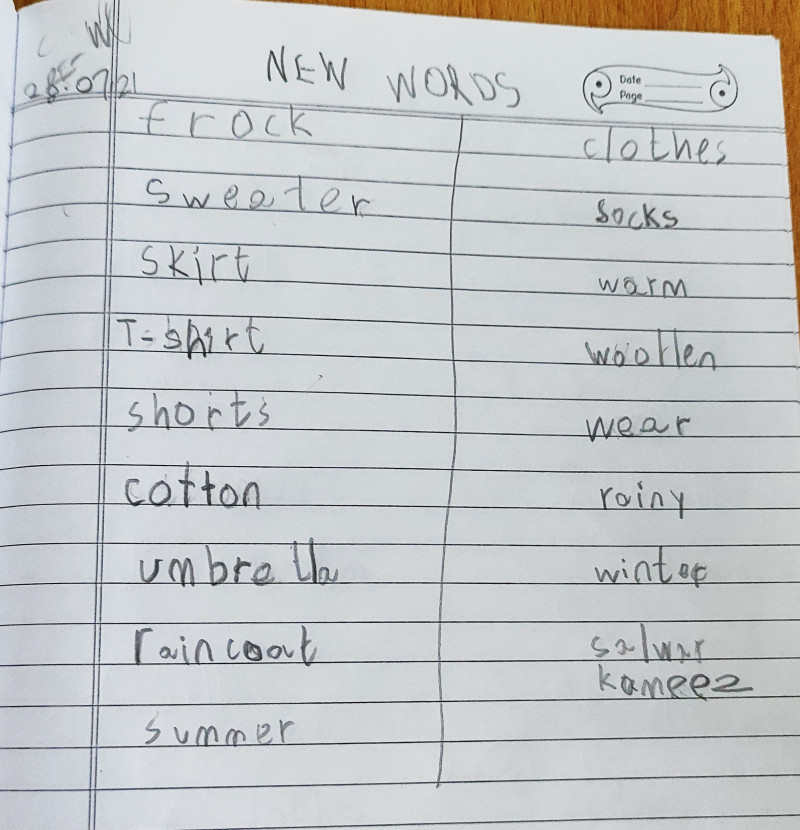 28.07.21
NEW WORDS
Date
Page
frock
sweater
skirt
T-shirt
shorts
cotton
umbrella
raincoat
summer
clothes
socks
warm
woollen
wear
rainy
winter
salwar
kameez